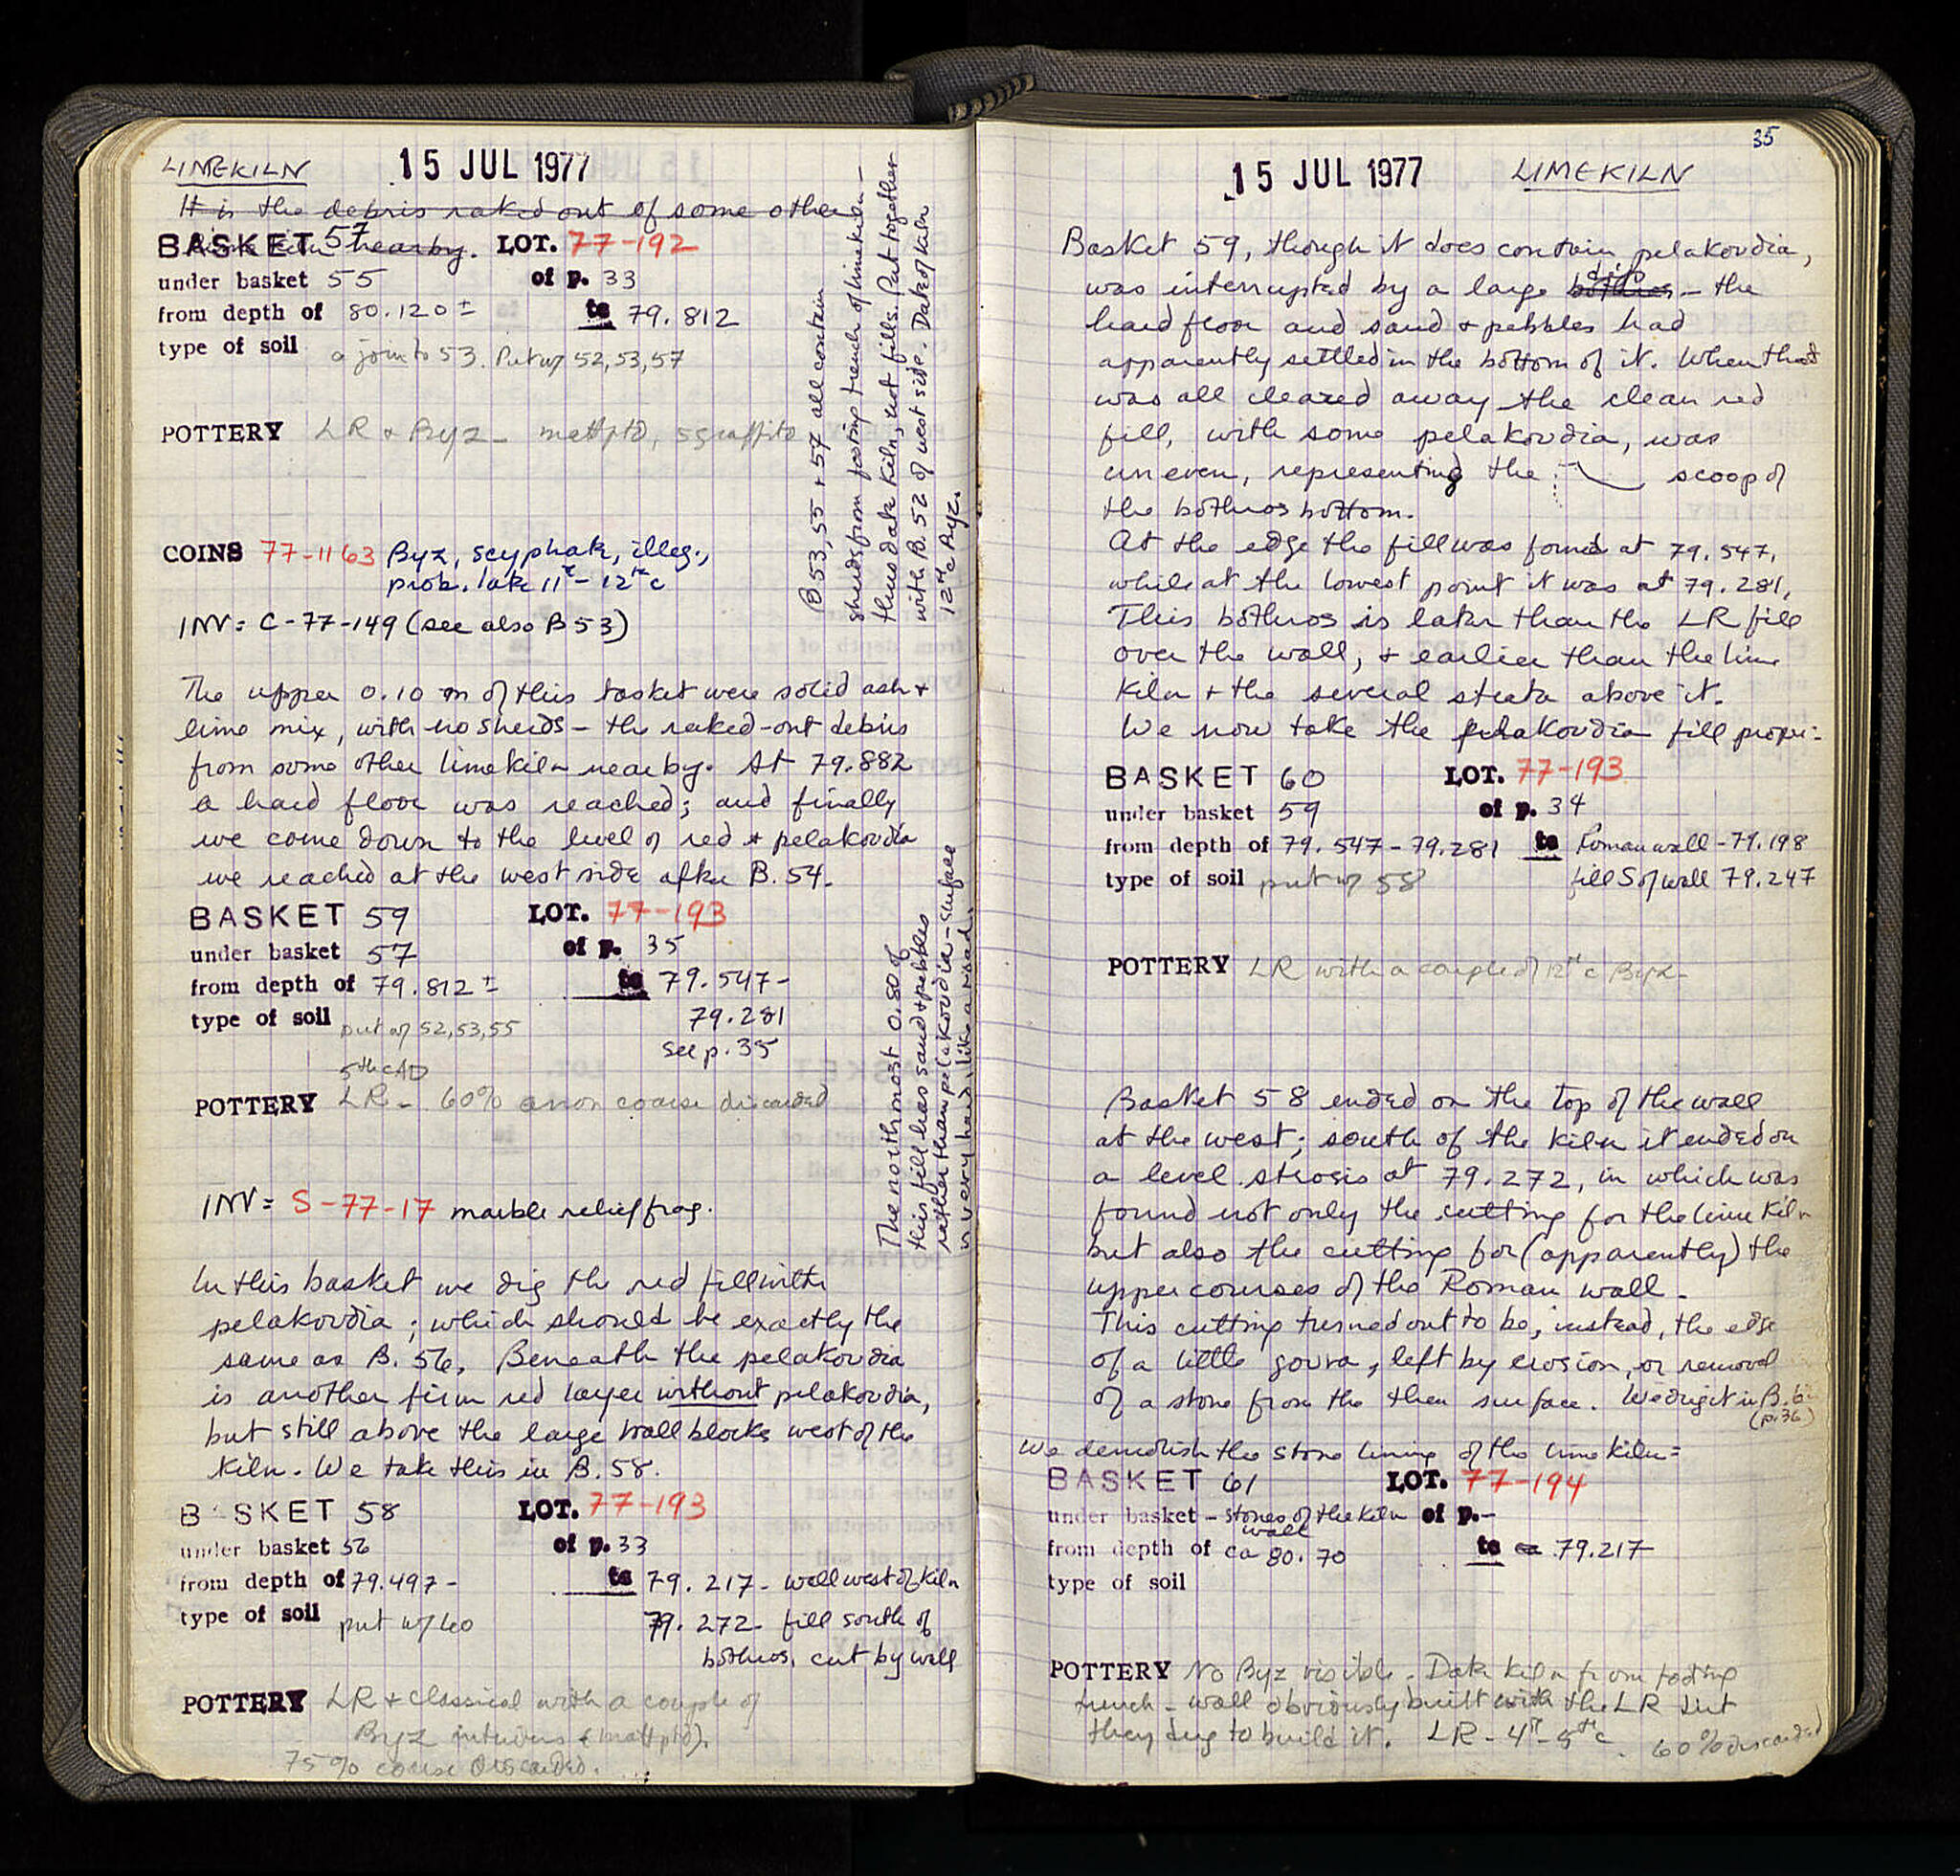 LIMEKILN
15 JUL 1977
It is the debris raked out of some other
BASKET 57 nearby. LOT. 77-192
under basket 55 of p. 33
from depth of 80.120± to 79.812
type of soil a join to 53. Put w/ 52, 53, 57
POTTERY LR + Byz - matt ptd, sgraffito
COINS 77-1163 Byz, scyphate, illeg.,
prob. late 11th - 12th c
INV = C-77-149 (see also B 53)
The upper 0.10 m of this basket were solid ash +
lime mix, with no sherds - the raked-out debris
from some other limekiln nearby. At 79.882
a hard floor was reached; and finally
we come down to the level of red + pelakoudia
we reached at the west side after B. 54.
BASKET 59 LOT. 77-193
under basket 57 of p. 35
from depth of 79.812± to 79.547-
type of soil put w/ 52, 53, 55 79.281
see p. 35
5th c AD
POTTERY LR - 60% coarse discarded
INV = S-77-17 marble relief frag.
In this basket we dig the red fill with
pelakoudia; which should be exactly the
same as B. 56. Beneath the pelakoudia
is another firm red layer without pelakoudia,
but still above the large wall blocks west of the
kiln. We take this in B. 58.
BASKET 58 LOT. 77-193
under basket 56 of p. 33
from depth of 79.497- to 79.217- wall west of kiln
type of soil put w/ 60 79.272- fill south of
bothros, cut by wall
POTTERY LR + classical with a couple of
Byz intrusions (matt ptd).
75% coarse discarded.
B 53, 55 + 57 all contain
sherds from footing trench of limekiln -
thus date kiln, not fills. Put together
with B. 52 of west side. Date of kiln
12th c Byz.
The northmost 0.80 of
this fill has sand + pebbles
rather than pelakoudia - surface
is very hard, like a road.
35
15 JUL 1977
LIMEKILN
Basket 59, though it does contain pelakoudia,
was interrupted by a large bothros dip - the
hard floor and sand + pebbles had
apparently settled in the bottom of it. When that
was all cleared away the clean red
fill, with some pelakoudia, was
uneven, representing the scoop of
the bothros bottom.
At the edge the fill was found at 79.547,
while at the lowest point it was at 79.281.
This bothros is later than the LR fill
over the wall, + earlier than the lime
kiln + the several strata above it.
We now take the pelakoudia fill proper:
BASKET 60 LOT. 77-193
under basket 59 of p. 34
from depth of 79.547-79.281 to Roman wall - 79.198
type of soil put w/ 58 fill S of wall 79.247
POTTERY LR with a couple of 12th c Byz-
Basket 58 ended on the top of the wall
at the west; south of the kiln it ended on
a level strosis at 79.272, in which was
found not only the cutting for the lime kiln
but also the cutting for (apparently) the
upper courses of the Roman wall.
This cutting turned out to be, instead, the edge
of a little gouva, left by erosion, or removal
of a stone from the then surface. We dug it in B. 62
(p. 36)
We demolish the stone lining of the lime kiln =
BASKET 61 LOT. 77-194
under basket - stones of the kiln wall of p. -
from depth of ca 80.70 to ca 79.217
type of soil
POTTERY No Byz visible. Date kiln from footing
trench - wall obviously built with the LR dirt
they dug to build it. LR - 4th - 5th c. 60% discarded